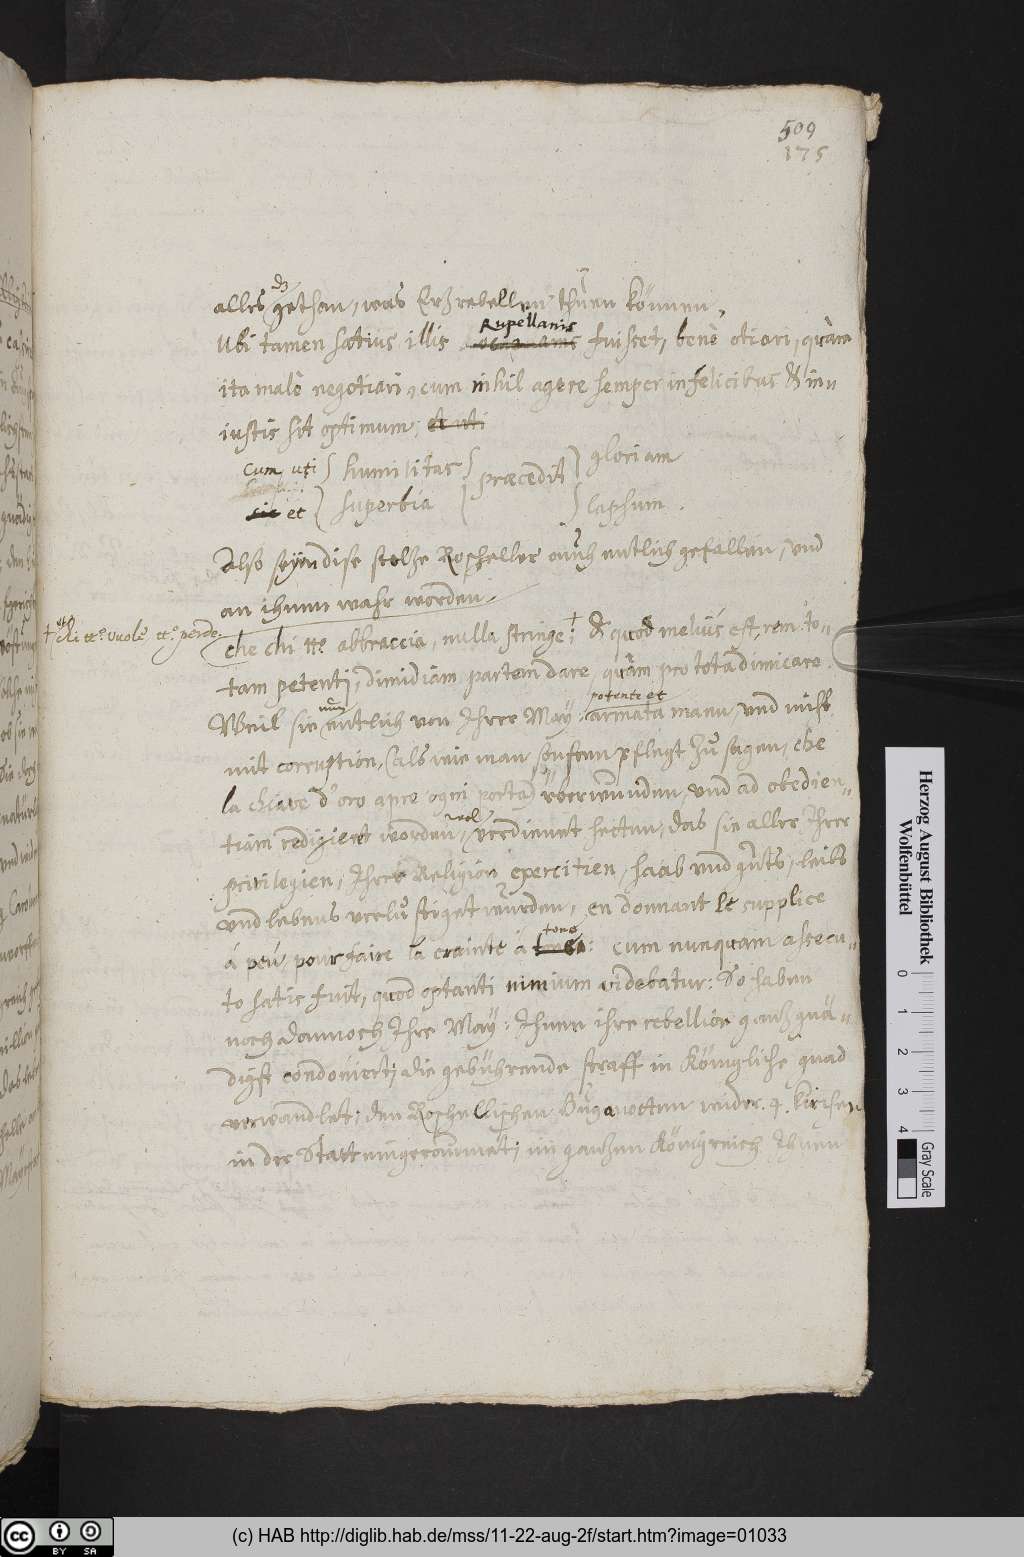 509
175
alles gethan, was Ertzrebellen thuen können,
Ubi tamen satius illis Rupellanis fuisset, benè otiari, quàm
ita malè negotiari, cum nihil agere semper infelicibus & in
iustis sit optimum; et uti
cum uti humilitas præcedit gloriam
sic et superbia lapsum.
Also seyn dise stoltze Rocheller auch entlich gefallen, und
an ihnen wahr worden.
† et chi tt.o vuole tt.o perde.
che chi tt.o abbraccia, nulla stringe:† & quod melius est, rem to-
tam petenti, dimidiam partem dare, quàm pro tota dimicare.
Weil sie nun entlich von Ihrer May: potente et armata manu, und nicht
mit corruption, (als wie man sonsten pflegt zu sagen, che
la chiave d'oro apre ogni porta) überwunden, und ad obedien-
tiam redigiert worden, wol verdient hetten, das sie aller Ihrer
privilegien, Ihrer Religion exercitien, haab und guets, leibs
und lebens verlustiget wurden, en donnant le supplice
à peu, pour faire la crainte à tous: cum nunquam assecu-
to satis fuit, quod optanti nimium videbatur: So haben
noch dannoch Ihre May: Ihnen ihre rebellion gantz gnä-
digst condoniert; die gebührende straff in Königliche gnad
verwandlet; den Rochellischen Hugenotten wider 4. kirchen
in der Statt eingeraummet; im gantzen Königreich Ihnen
Herzog August Bibliothek
Wolfenbüttel
0 1 2 3 4
Gray Scale
cc BY SA
(c) HAB http://diglib.hab.de/mss/11-22-aug-2f/start.htm?image=01033